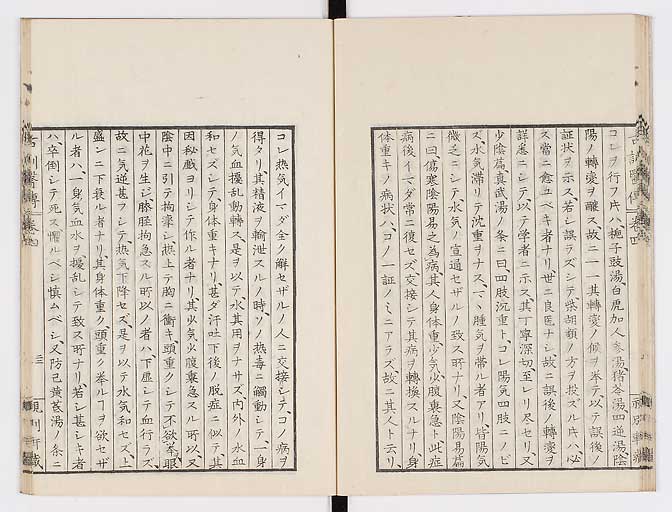 コレヲ行フ片ハ梔子豉湯、白虎加人参湯、猪苓湯、四逆湯、陰
陽ノ轉變ヲ醸ス故ニ一一其轉變ノ候ヲ挙テ以テ誤後ノ
証状ヲ示ス若シ誤ラズシテ柴胡類ノ方ヲ投ズル片ハ必
ス當ニ愈ユベキ者ナリ世ニ良医ナシ故ニ誤後ノ轉變ヲ
詳悉ニシテ以テ学者ニ示ス其丁寧深切至レリ尽セリ又
少陰篇真武湯ノ条ニ曰四肢沉重トコレ陽気四肢ニノビ
ズ水気滞リテ沈重ヲナス、マヽ腫気ヲ帯ル者アリ皆陽気
微乏ニシテ水気ノ宣通セザルノ致ス所ナリ又陰陽易篇
ニ曰傷寒陰陽易之為病其人身体重少気少腹裏急ト此症
病後イマダ常ニ復セズ交接シテ其病ヲ轉換スルナリ身
体重キノ病状ハ、コノ一証ノミニアラズ、故ニ其人ト云リ
コレ热気イマダ全ク解セザルノ人ニ交接シテコノ病ヲ
得タリ其精液ヲ輸泄スルノ時、ソノ热毒ニ觸動シテ一身
ノ気血擾乱動轉ス是ヲ以テ水其用ヲナサズ内外ノ水血
和セズシテ身体重キナリ甚ダ汗吐下後ノ脱症ニ似テ其
因秘戯ヨリシテ作ル者ナリ其少気少腹裏急スル所以又
陰中ニ引テ拘攣シ热上テ胸ニ衝キ頭重クシテ不欲挙眼
中花ヲ生ジ膝胫拘急スル所以ノ者ハ下虚シテ血行ラズ
故ニ気逆甚フシテ热気下降セズ是ヲ以テ水気和セズ上
盛ンニ下衰ル者ナリ其身体重ク頭重ク挙ルヿヲ欲セザ
ル者ハ一身気血水ヲ擾乱シテ致ス所ナリ若シ甚シキ者
ハ卒倒シテ死ス懼ルベシ慎ムベシ又防已黄芪湯ノ条ニ